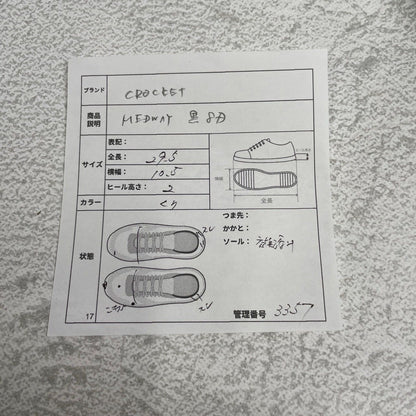 ブランド CROCKET
商品説明 MEDWAY 黒
サイズ
表記：
全長： 29.5
横幅： 10.5
ヒール高さ： 2
ヒール高さ
横幅
全長
カラー くり
状態
つま先：
かかと：
ソール：
17
管理番号 3357